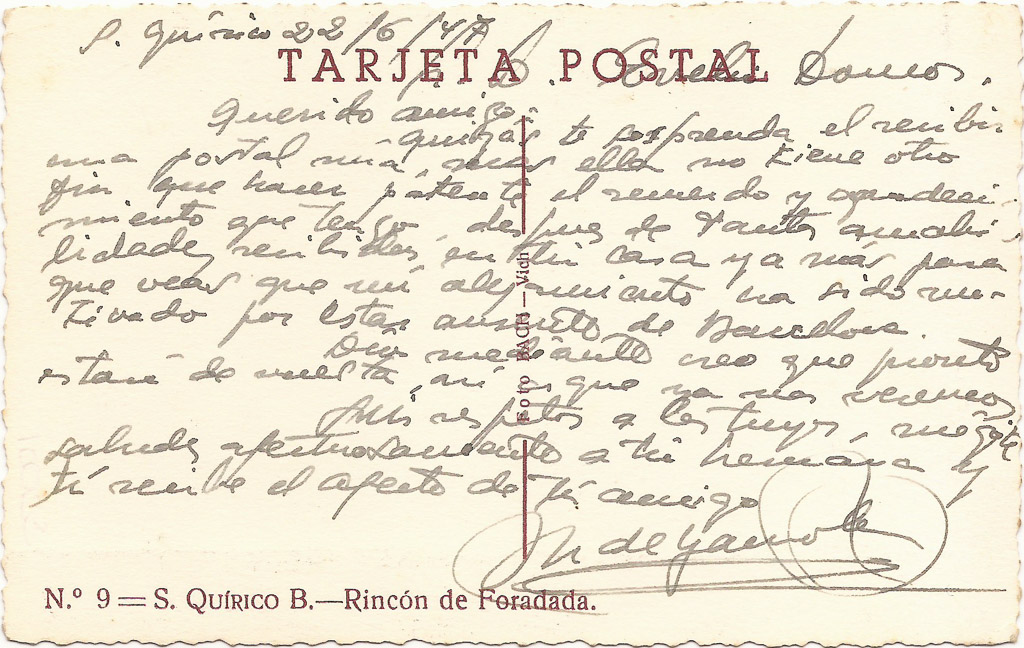 S. Quirico 22/6/47
TARJETA POSTAL
Sr. D. Emilio Domos.
Querido amigo:
quizás te sorprenda el recibir
una postal mía, mas ella no tiene otro
fin que hacer patente el recuerdo y agradeci-
miento que tengo, despues de tantas amabi-
lidades recibidas en tu casa y a más para
que veas que mi alejamiento ha sido mo-
tivado por estar ausente de Barcelona.
Dios mediante creo que pronto
estaré de vuelta, así es que ya nos veremos
Mis respetos a los tuyos,
saludes afectuosamente a tu hermana y
tí recibe el afecto de tú amigo
Foto BACH—Vich
N.º 9 = S. QUÍRICO B.—Rincón de Foradada.